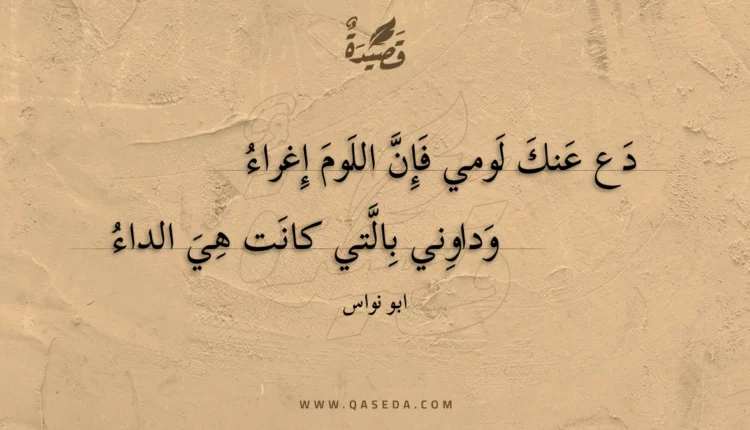 قَصِيدَةٌ
دَع عَنكَ لَومي فَإِنَّ اللَومَ إِغراءُ
وَداوِني بِالَّتي كانَت هِيَ الداءُ
ابو نواس
WWW.QASEDA.COM